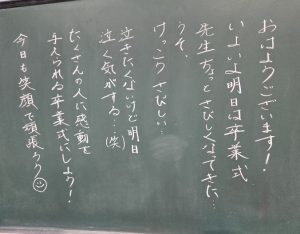 おはようございます！
いよいよ明日は卒業式
先生ちょっとさびしくなってきた…
うそ、
けっこうさびしい…
泣きたくないけど明日
泣く気がする…(笑)
たくさんの人に感動を
与えられる卒業式にしよう！
今日も笑顔で頑張ろう☺